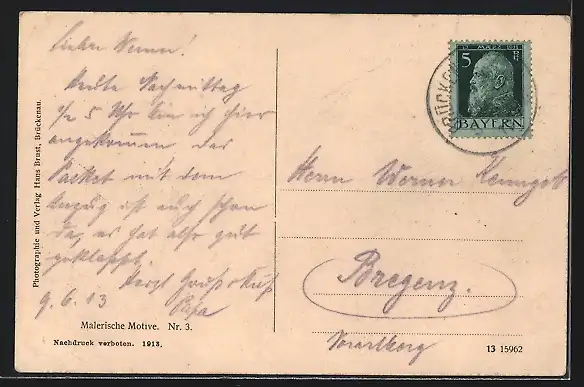 Lieber Werner!
Heute Nachmittag
1/2 5 Uhr bin ich hier
angekommen das
Packet mit dem
Anzug ist auch schon
da, es hat sehr gut
geklappt.
Herzl Gruß & Kuß
9. 6. 13 Papa
Photographie und Verlag Hans Brust, Brückenau.
Malerische Motive. Nr. 3.
Nachdruck verboten. 1913.
5
BAYERN
Herrn Werner
Bregenz.
Vorarlberg
13 15962